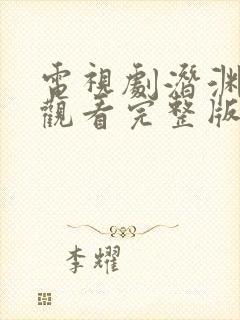 電視劇潛淵
觀看完整版
李耀